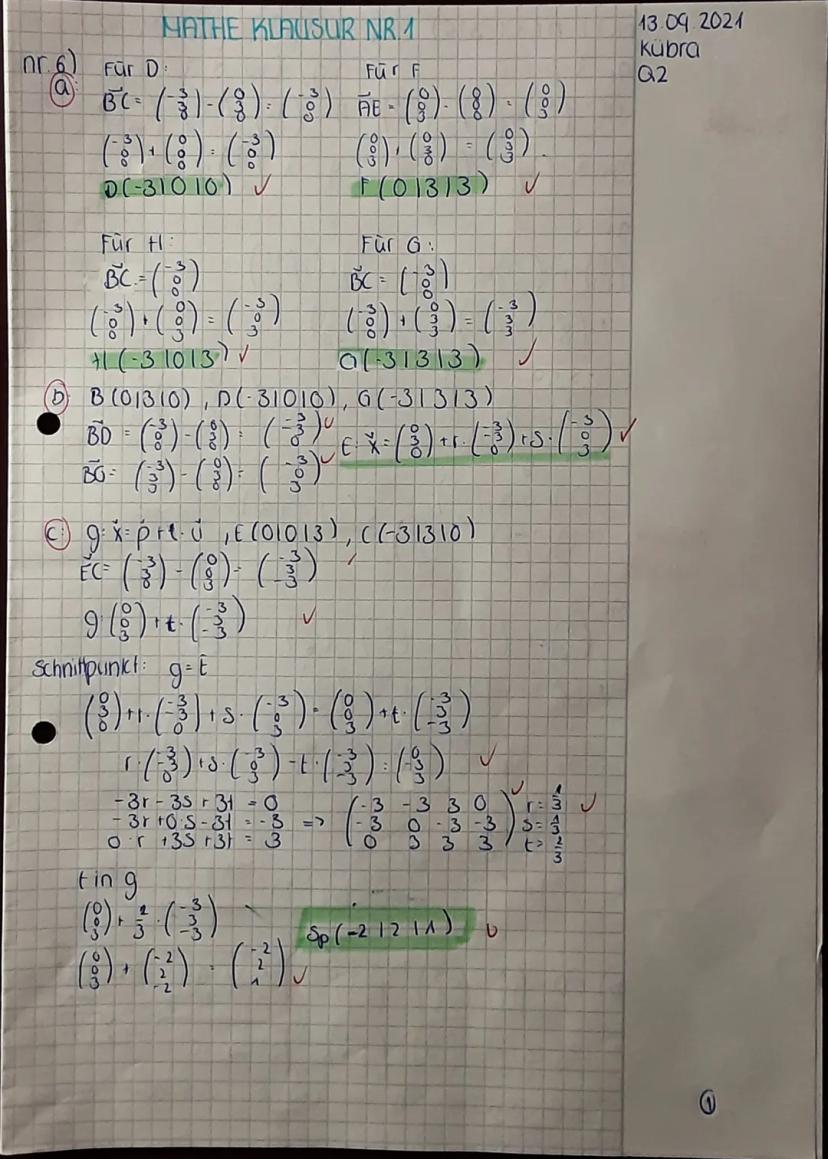 MATHE KLAUSUR NR.1
13.09.2021
Kübra
Q2
nr. 6)
a)
Für D:
BC = (-3 3 0) - (0 3 0) = (-3 0 0)
(-3 0 0) + (0 0 0) = (-3 0 0)
D(-3|0|0) ✓
Für F
AE = (0 0 3) - (0 0 0) = (0 0 3)
(0 0 3) + (0 3 0) = (0 3 3)
F(0|3|3) ✓
Für H:
BC = (-3 0 0)
(-3 0 0) + (0 0 3) = (-3 0 3)
H(-3|0|3) ✓
Für G:
BC = (-3 0 0)
(-3 0 0) + (0 3 3) = (-3 3 3)
G(-3|3|3) ✓
b) B(0|3|0), D(-3|0|0), G(-3|3|3)
BD = (-3 0 0) - (0 3 0) = (-3 -3 0) ✓
BG = (-3 3 3) - (0 3 0) = (-3 0 3) ✓
E: x = (0 3 0) + r · (-3 -3 0) + s · (-3 0 3) ✓
c) g: x = p + t · u, E(0|0|3), C(-3|3|0)
EC = (-3 3 0) - (0 0 3) = (-3 3 -3)
g: (0 0 3) + t · (-3 3 -3) ✓
Schnittpunkt: g = E
(0 3 0) + r · (-3 -3 0) + s · (-3 0 3) = (0 0 3) + t · (-3 3 -3)
r · (-3 -3 0) + s · (-3 0 3) - t · (-3 3 -3) = (0 -3 3) ✓
-3r - 3s + 3t = 0
-3r + 0·s - 3t = -3 =>
0·r + 3s + 3t = 3
(-3 -3 3 0
-3 0 -3 -3
0 3 3 3) ✓
r = 1/3 ✓
s = 1/3
t = 2/3
t in g
(0 0 3) + 2/3 · (-3 3 -3)
(0 0 3) + (-2 2 -2) = (-2 2 1) ✓
Sp(-2|2|1) ✓
1